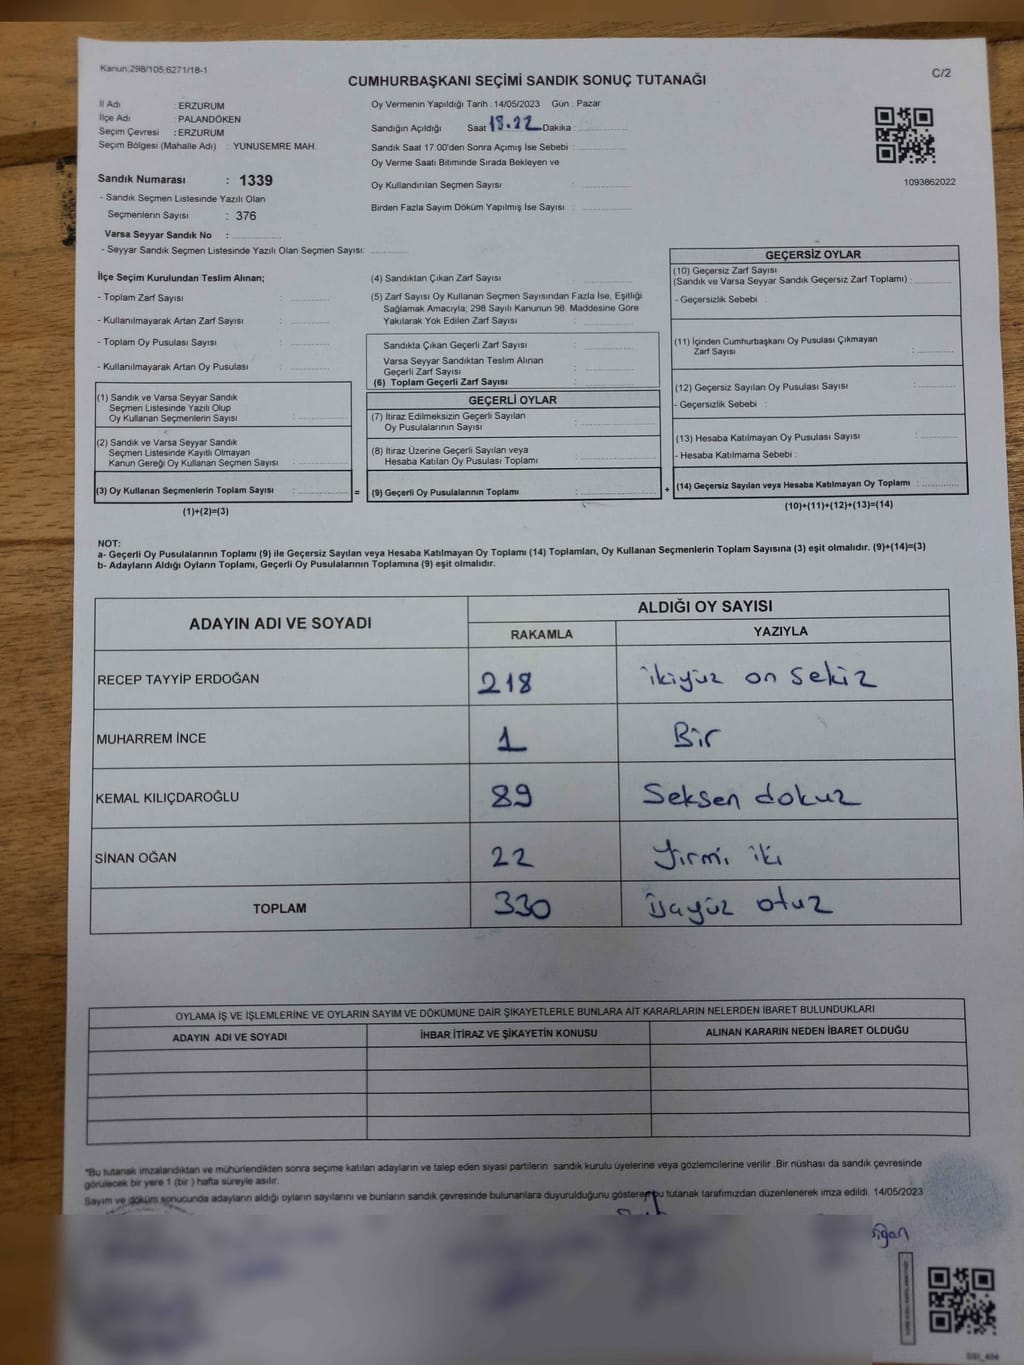 Kanun:298/105;6271/18-1
CUMHURBAŞKANI SEÇİMİ SANDIK SONUÇ TUTANAĞI
C/2
İl Adı : ERZURUM
İlçe Adı : PALANDÖKEN
Seçim Çevresi : ERZURUM
Seçim Bölgesi (Mahalle Adı) : YUNUSEMRE MAH.
Sandık Numarası : 1339
- Sandık Seçmen Listesinde Yazılı Olan
Seçmenlerin Sayısı : 376
Varsa Seyyar Sandık No :
- Seyyar Sandık Seçmen Listesinde Yazılı Olan Seçmen Sayısı:
Oy Vermenin Yapıldığı Tarih : 14/05/2023 Gün : Pazar
Sandığın Açıldığı Saat 18.22 Dakika :
Sandık Saat 17:00'den Sonra Açımış İse Sebebi :
Oy Verme Saati Bitiminde Sırada Bekleyen ve
Oy Kullandırılan Seçmen Sayısı :
Birden Fazla Sayım Döküm Yapılmış İse Sayısı :
1093862022
İlçe Seçim Kurulundan Teslim Alınan;
- Toplam Zarf Sayısı :
- Kullanılmayarak Artan Zarf Sayısı :
- Toplam Oy Pusulası Sayısı :
- Kullanılmayarak Artan Oy Pusulası :
(1) Sandık ve Varsa Seyyar Sandık
Seçmen Listesinde Yazılı Olup
Oy Kullanan Seçmenlerin Sayısı :
(2) Sandık ve Varsa Seyyar Sandık
Seçmen Listesinde Kayıtlı Olmayan
Kanun Gereği Oy Kullanan Seçmen Sayısı :
(3) Oy Kullanan Seçmenlerin Toplam Sayısı : =
(1)+(2)=(3)
(4) Sandıktan Çıkan Zarf Sayısı :
(5) Zarf Sayısı Oy Kullanan Seçmen Sayısından Fazla İse, Eşitliği
Sağlamak Amacıyla; 298 Sayılı Kanunun 98. Maddesine Göre
Yakılarak Yok Edilen Zarf Sayısı :
Sandıkta Çıkan Geçerli Zarf Sayısı :
Varsa Seyyar Sandıktan Teslim Alınan
Geçerli Zarf Sayısı :
(6) Toplam Geçerli Zarf Sayısı :
GEÇERLİ OYLAR
(7) İtiraz Edilmeksizin Geçerli Sayılan
Oy Pusulalarının Sayısı :
(8) İtiraz Üzerine Geçerli Sayılan veya
Hesaba Katılan Oy Pusulası Toplamı :
(9) Geçerli Oy Pusulalarının Toplamı : +
GEÇERSİZ OYLAR
(10) Geçersiz Zarf Sayısı
(Sandık ve Varsa Seyyar Sandık Geçersiz Zarf Toplamı) :
- Geçersizlik Sebebi :
(11) İçinden Cumhurbaşkanı Oy Pusulası Çıkmayan
Zarf Sayısı :
(12) Geçersiz Sayılan Oy Pusulası Sayısı :
- Geçersizlik Sebebi :
(13) Hesaba Katılmayan Oy Pusulası Sayısı :
- Hesaba Katılmama Sebebi :
(14) Geçersiz Sayılan veya Hesaba Katılmayan Oy Toplamı :
(10)+(11)+(12)+(13)=(14)
NOT:
a- Geçerli Oy Pusulalarının Toplamı (9) ile Geçersiz Sayılan veya Hesaba Katılmayan Oy Toplamı (14) Toplamları, Oy Kullanan Seçmenlerin Toplam Sayısına (3) eşit olmalıdır. (9)+(14)=(3)
b- Adayların Aldığı Oyların Toplamı, Geçerli Oy Pusulalarının Toplamına (9) eşit olmalıdır.
ADAYIN ADI VE SOYADI
ALDIĞI OY SAYISI
RAKAMLA YAZIYLA
RECEP TAYYİP ERDOĞAN 218 ikiyüz on sekiz
MUHARREM İNCE 1 Bir
KEMAL KILIÇDAROĞLU 89 Seksen dokuz
SİNAN OĞAN 22 Yirmi iki
TOPLAM 330 üçyüz otuz
OYLAMA İŞ VE İŞLEMLERİNE VE OYLARIN SAYIM VE DÖKÜMÜNE DAİR ŞİKAYETLERLE BUNLARA AİT KARARLARIN NELERDEN İBARET BULUNDUKLARI
ADAYIN ADI VE SOYADI İHBAR İTİRAZ VE ŞİKAYETİN KONUSU ALINAN KARARIN NEDEN İBARET OLDUĞU
*Bu tutanak imzalandıktan ve mühürlendikten sonra seçime katılan adayların ve talep eden siyasi partilerin sandık kurulu üyelerine veya gözlemcilerine verilir .Bir nüshası da sandık çevresinde
görülecek bir yere 1 (bir ) hafta süreyle asılır.
Sayım ve döküm sonucunda adayların aldığı oyların sayılarını ve bunların sandık çevresinde bulunanlara duyurulduğunu gösteren bu tutanak tarafımızdan düzenlenerek imza edildi. 14/05/2023